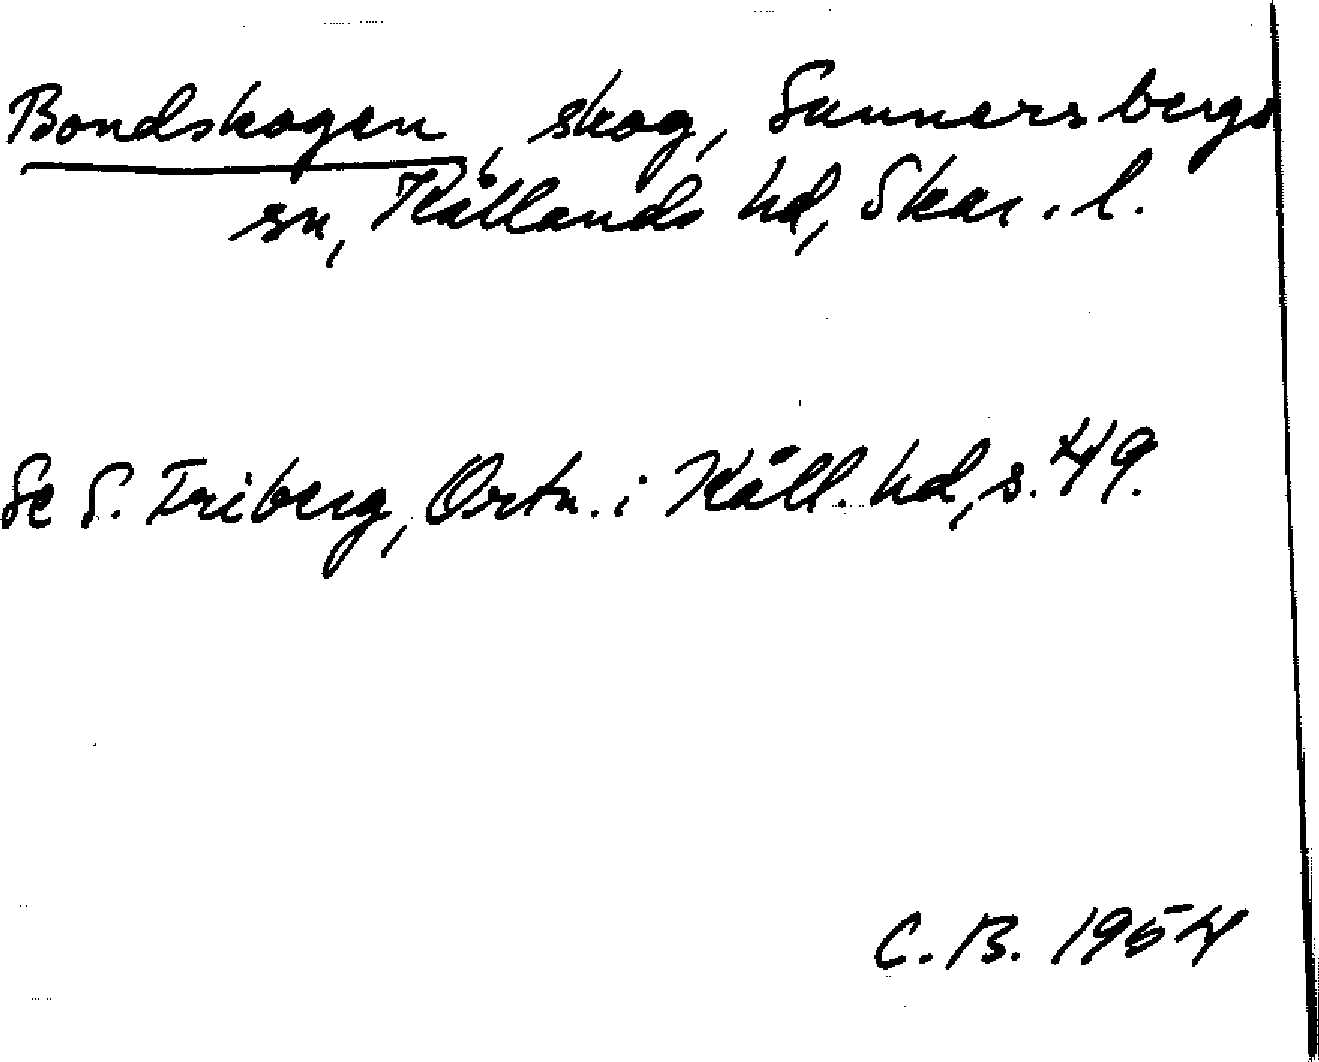 Bondskogen, skog, Sunnersbergs
sn, Kållands hd, Skar. l.
Se S. Friberg, Ortn. i Kåll. hd, s. 49.
C. B. 1954